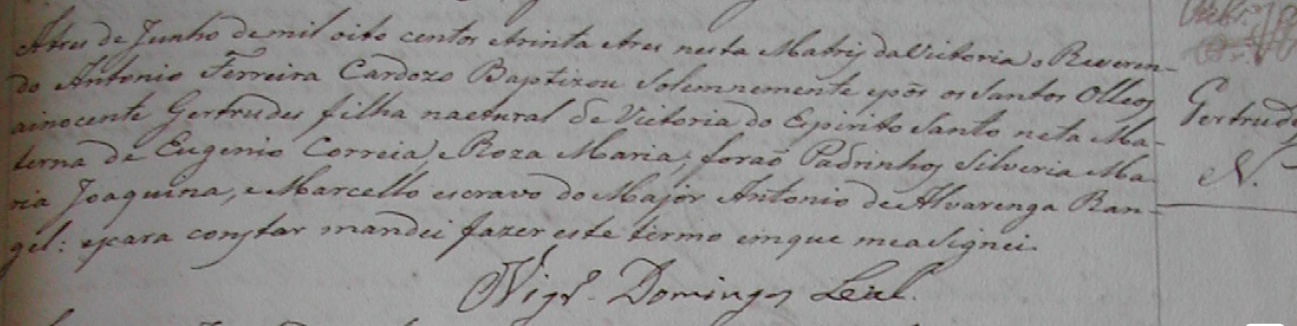 Atres de Junho demil oito centos etrinta etres nesta Matriz daVictoria o Reveren-
do Antonio Ferreira Cardozo Baptizou Solemnemente epôs os Santos Olleos
ainocente Gertrudes filha naetural de Victoria do Espirito Santo neta Ma-
terna de Eugenio Correia, e Roza Maria, foraõ Padrinhos Silveria Ma-
ria Joaquina, e Marcello escravo do Major Antonio de Alvarenga Ran-
gel: epara constar mandei fazer este termo emque meaSignei.
Vigr.º Domingos Leal.
Gertrudes
N.